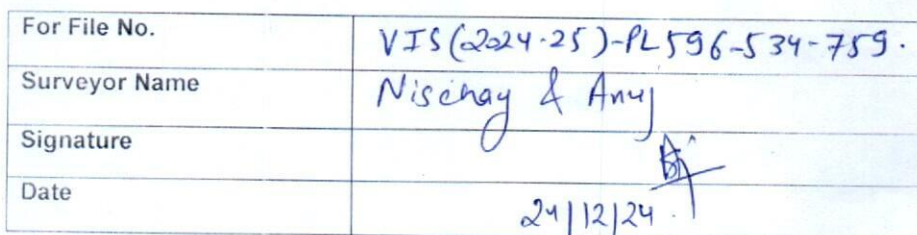 For File No. VIS(2024-25)-PL596-534-759.
Surveyor Name Nischay & Anuj
Signature
Date 24/12/24